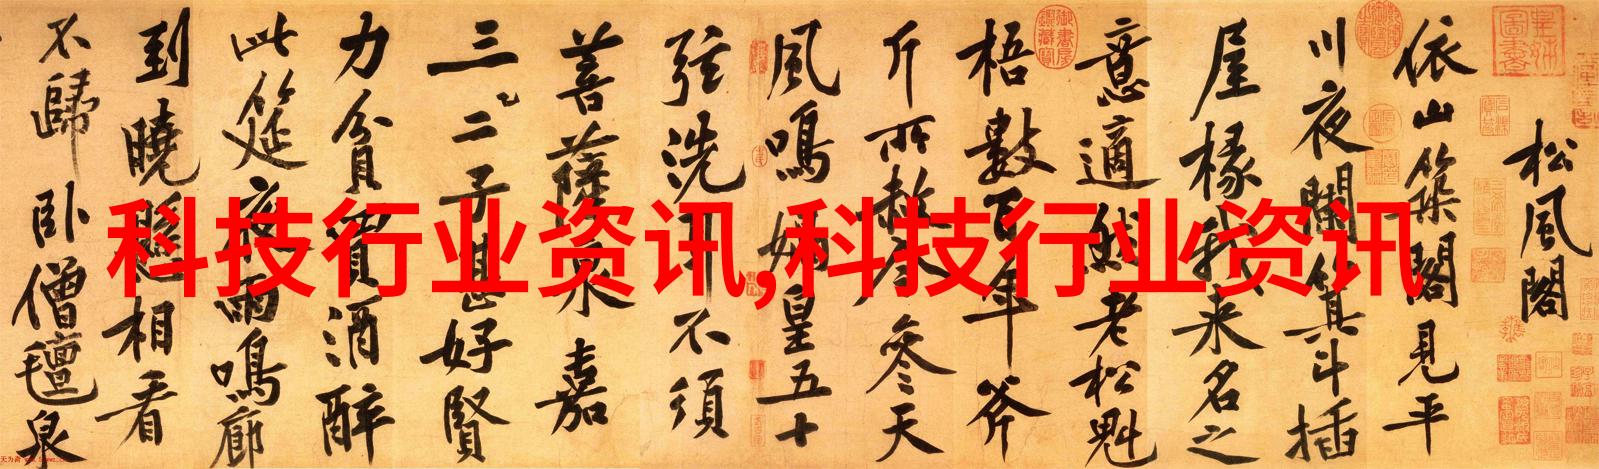 松風閣
依山築閣見平
川夜闌箕斗插
屋椽我来名之
意適然老松魁
梧數百年斧
斤所赦今参天
風鳴媧皇五十
弦洗耳不須
菩薩泉嘉
三二子甚好賢
力貧買酒醉
此筵夜雨鳴廊
到曉懸相看
不歸卧僧氈泉
科技行业资讯,科技行业资讯